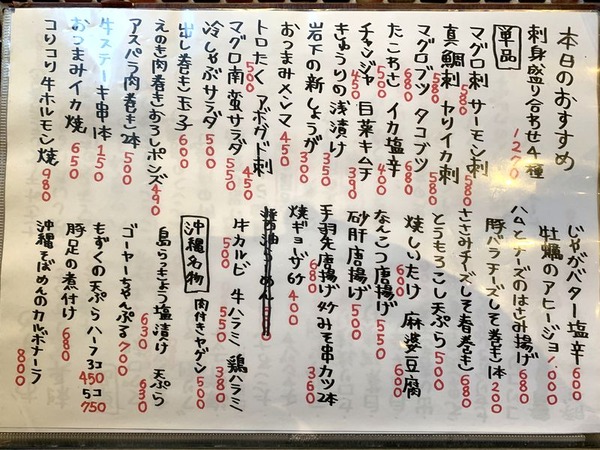 本日のおすすめ
刺身盛り合わせ4種 1270
単品
マグロ刺 580 サーモン刺 580
真鯛刺 580 ヤリイカ刺 580
マグロブツ 680 タコブツ 580
たこわさ 500 イカ塩辛 400
チャンジャ 450 白菜キムチ 390
きゅうりの浅漬け 350
岩下の新しょうが 300
おつまみメンマ 450
トロたく 500 アボガド刺 450
マグロ南蛮サラダ 550
冷しゃぶサラダ 500
出し巻き玉子 600
えのき肉巻きおろしポンズ 490
アスパラ肉巻き2本 500
牛ステーキ串1本 150
おつまみイカ焼 650
コリコリ牛ホルモン焼 980
じゃがバター塩辛 600
牡蠣のアヒージョ 1,000
ハムとチーズのはさみ揚げ 680
豚バラチーズしそ巻き1本 200
ささみチーズしそ春巻き 680
とうもろこし天ぷら 500
焼しいたけ 600 麻婆豆腐 600
なんこつ唐揚げ 550
砂肝唐揚げ 500
手羽先唐揚げ4ケ 680 みそ串カツ2本 360
焼ギョーザ6ケ 400
牛カルビ 500 牛ハラミ 550 鶏ハラミ 380
沖縄名物
肉付きヤゲン 500
島らっきょう塩漬け 630 天ぷら 630
ゴーヤーちゃんぷる 700
もずくの天ぷらハーフ3コ 450 5コ 750
豚足の煮付け 680
沖縄そばめんのカルボナーラ 800